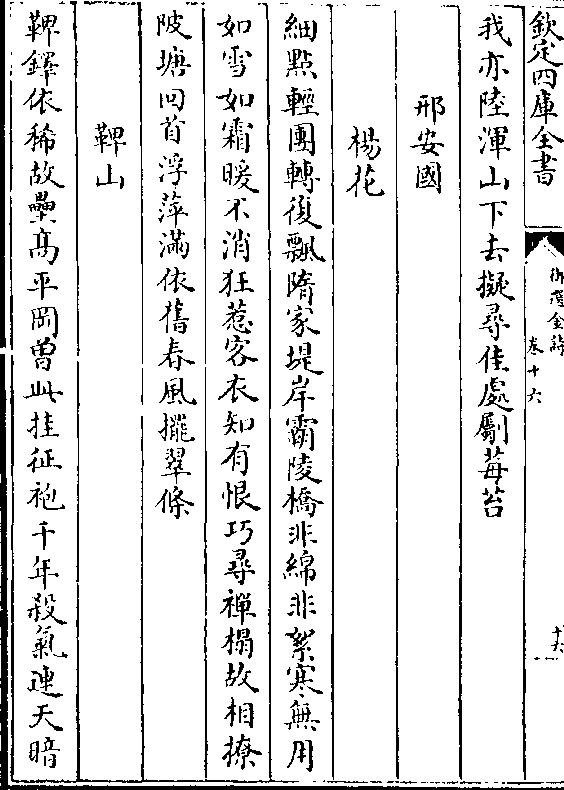 欽定四庫全書
御選金詩
卷十六
十六
我亦陸渾山下去擬尋佳處斸莓苔
邢安國
楊花
細㸃輕團轉復飄隋家堤岸霸陵橋非綿非絮寒無用
如雪如霜暖不消狂惹客衣知有恨巧尋禪榻故相撩
陂塘回首浮萍滿依舊春風擺翠條
鞞山
鞞鐸依稀故壘髙平岡曽此挂征袍千年殺氣連天暗